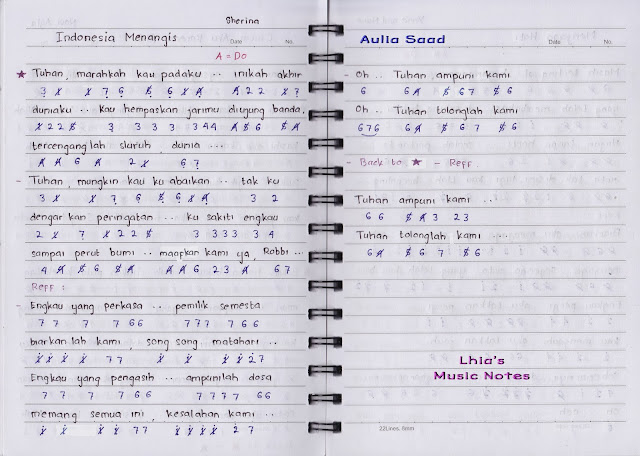 Sherina
Indonesia Menangis
Date No.
A = Do
★ Tuhan, marahkah kau padaku .. inikah akhir
3 1 1 7 6 5 6 1 4 4 2 2 1 7
duniaku .. kau hempaskan jarimu diujung banda,
1 2 2 5 3 3 3 3 3 4 4 4 5 6 5 4
tercenganglah sluruh, dunia ...
4 4 6 4 2 1 6 7
- Tuhan, mungkin kau ku abaikan .. tak ku
3 1 1 7 6 5 6 1 4 3 2
dengar kan peringatan .. ku sakiti engkau
2 1 7 1 2 2 5 3 3 3 3 3 4
sampai perut bumi .. maafkan kami ya, Robbi ...
4 4 5 6 5 4 4 4 6 2 3 4 6 7
Reff :
- Engkau yang perkasa .. pemilik semesta
7 7 7 7 6 6 7 7 7 7 6 6
biarkan lah kami, song song matahari ..
1 1 1 1 7 7 1 1 1 1 2 7
Engkau yang pengasih .. ampunilah dosa
7 7 7 7 6 6 7 7 7 7 6 6
memang semua ini, kesalahan kami ..
1 1 1 1 7 7 1 1 1 1 2 7
Aulia Saad
Date No.
- Oh .. Tuhan, ampuni kami
6 6 4 5 6 7 5 6
Oh .. Tuhan tolonglah kami
6 7 6 6 4 5 6 7 5 6
- Back to ★ - Reff.
Tuhan ampuni kami ...
6 6 5 4 3 2 3
Tuhan tolonglah kami ....
6 4 5 6 7 5 6
Lhia's
Music Notes
22Lines, 6mm